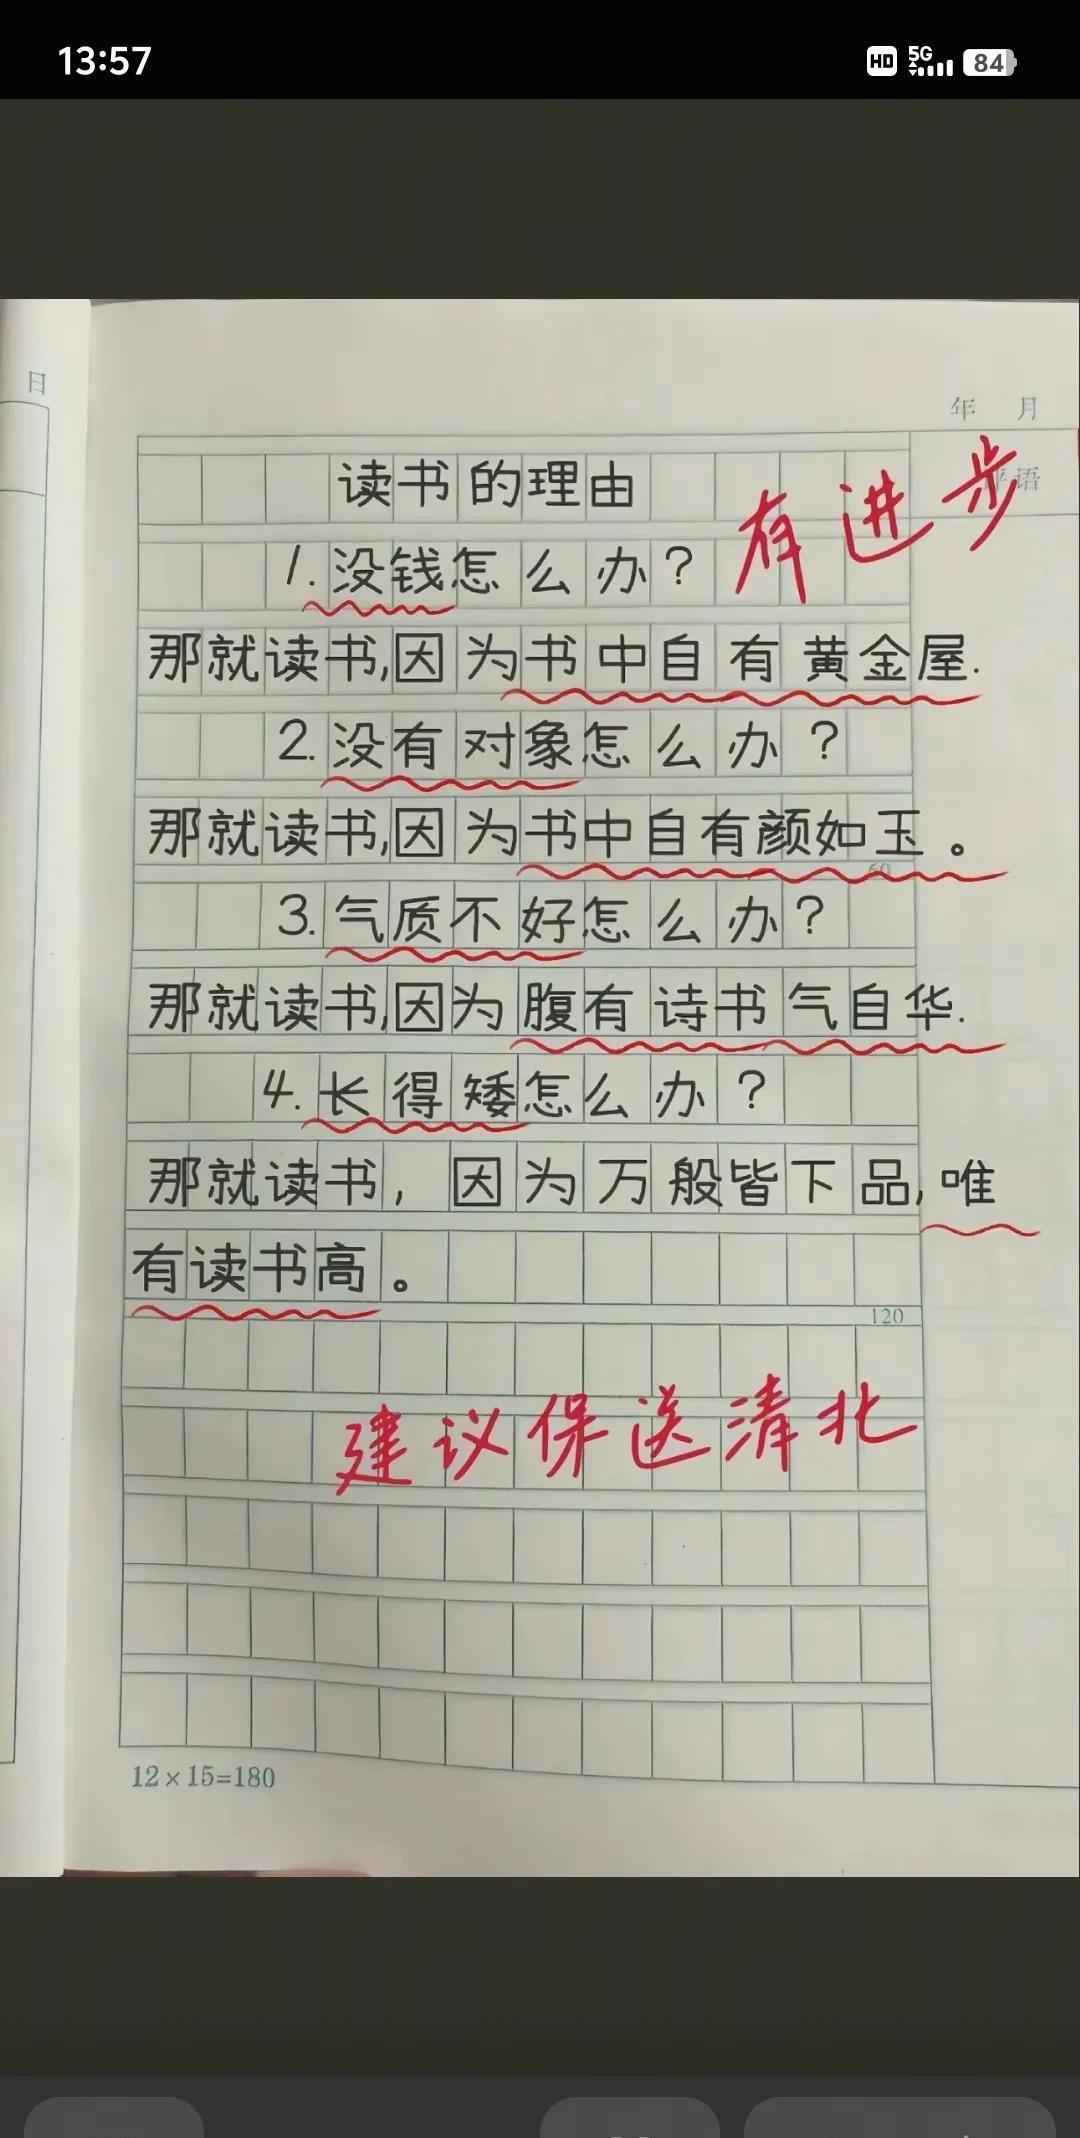 13:57
HD 5G 84
日
年 月
评语
读书的理由
有进步
1.没钱怎么办?
那就读书,因为书中自有黄金屋.
2.没有对象怎么办?
那就读书,因为书中自有颜如玉。
60
3.气质不好怎么办?
那就读书,因为腹有诗书气自华.
4.长得矮怎么办?
那就读书,因为万般皆下品,唯
有读书高。
120
建议保送清北
12×15=180